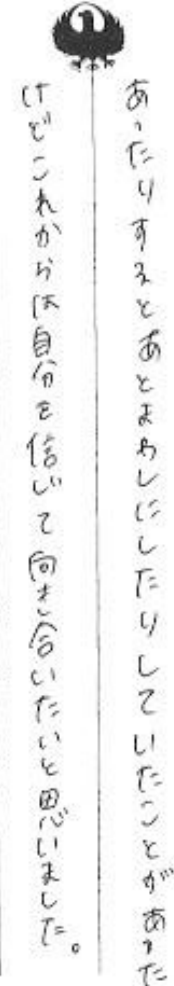 あったりするとあとまわしにしたりしていたことがあった
けどこれからは自分を信じて向き合いたいと思いました。